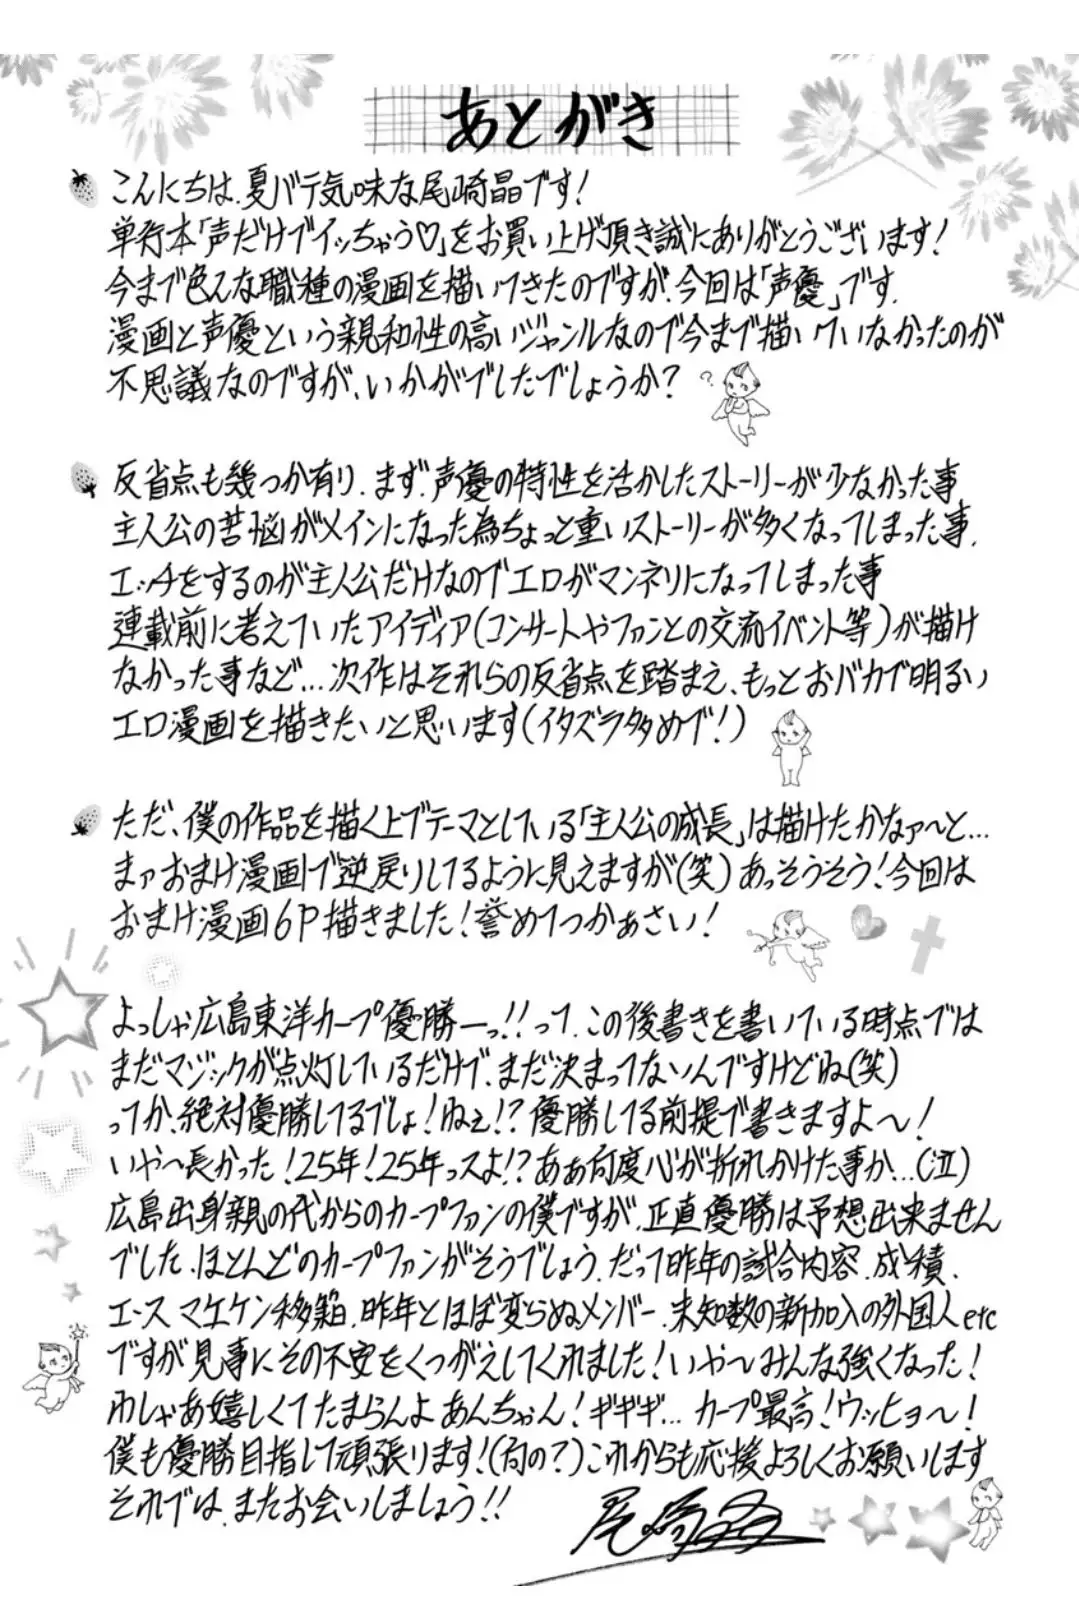 あとがき
こんにちは、夏バテ気味な尾崎晶です!
単行本「声だけでイッちゃう♡」をお買い上げ頂き誠にありがとうございます!
今まで色んな職種の漫画を描いてきたのですが、今回は「声優」です。
漫画と声優という親和性の高いジャンルなので今まで描いていなかったのが
不思議なのですが、いかがでしたでしょうか?
?
反省点も幾つか有り、まず、声優の特性を活かしたストーリーが少なかった事、
主人公の苦悩がメインになった為ちょっと重いストーリーが多くなってしまった事、
エッチをするのが主人公だけなのでエロがマンネリになってしまった事
連載前に考えていたアイディア(コンサートやファンとの交流イベント等)が描け
なかった事など…次作はそれらの反省点を踏まえ、もっとおバカで明るい
エロ漫画を描きたいと思います(イタズラ多めで!)
ただ、僕の作品を描く上でテーマとしている「主人公の成長」は描けたかなァ〜と…
まァおまけ漫画で逆戻りしてるように見えますが(笑)あっそうそう!今回は
おまけ漫画6P描きました!誉めてつかぁさい!
よっしゃ広島東洋カープ優勝ーっ!!って、この後書きを書いている時点では
まだマジックが点灯しているだけで、まだ決まってないんですけどね(笑)
ってか、絶対優勝してるでしょ!ねぇ!?優勝してる前提で書きますよ〜!
いや〜長かった!25年!25年っスよ!?あぁ何度心が折れかけた事か…(泣)
広島出身親の代からのカープファンの僕ですが、正直優勝は予想出来ません
でした、ほとんどのカープファンがそうでしょう、だって昨年の試合内容、成績、
エース マエケン移籍、昨年とほぼ変らぬメンバー、未知数の新加入の外国人etc
ですが見事にその不安をくつがえしてくれました!いや〜みんな強くなった!
わしゃあ嬉しくてたまらんよ あんちゃん!ギギギ… カープ最高!ウッヒョ〜!
僕も優勝目指して頑張ります!(何の?)これからも応援よろしくお願いします
それでは、またお会いしましょう!!
尾崎晶